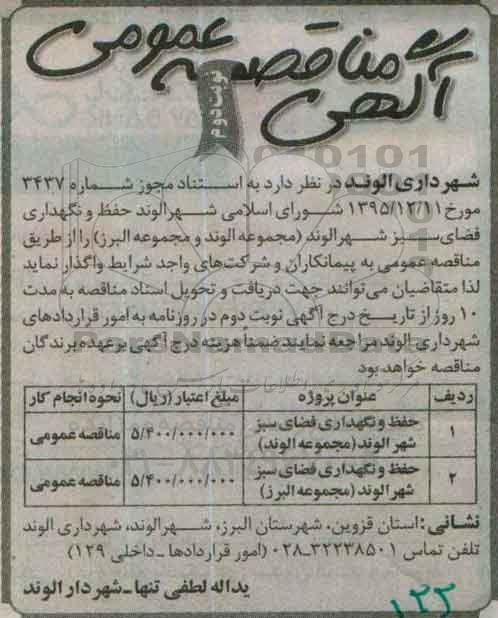 آگهی مناقصه عمومی
نوبت دوم
شهرداری الوند در نظر دارد به استناد مجوز شماره ۳۴۳۷
مورخ ۱۳۹۵/۱۲/۱۱ شورای اسلامی شهرالوند حفظ و نگهداری
فضای سبز شهرالوند (مجموعه الوند و مجموعه البرز) را از طریق
مناقصه عمومی به پیمانکاران و شرکت‌های واجد شرایط واگذار نماید
لذا متقاضیان می‌توانند جهت دریافت و تحویل اسناد مناقصه به مدت
۱۰ روز از تاریخ درج آگهی نوبت دوم در روزنامه به امور قراردادهای
شهرداری الوند مراجعه نمایند ضمناً هزینه درج آگهی برعهده برندگان
مناقصه خواهد بود
ردیف عنوان پروژه مبلغ اعتبار (ریال) نحوه انجام کار
۱ حفظ و نگهداری فضای سبز شهر الوند (مجموعه الوند) ۵/۴۰۰/۰۰۰/۰۰۰ مناقصه عمومی
۲ حفظ و نگهداری فضای سبز شهر الوند (مجموعه البرز) ۵/۴۰۰/۰۰۰/۰۰۰ مناقصه عمومی
نشانی: استان قزوین، شهرستان البرز، شهرالوند، شهرداری الوند
تلفن تماس ۳۲۲۳۸۵۰۱-۰۲۸ (امور قراردادها - داخلی ۱۲۹)
یداله لطفی تنها - شهردار الوند
۱۲۲